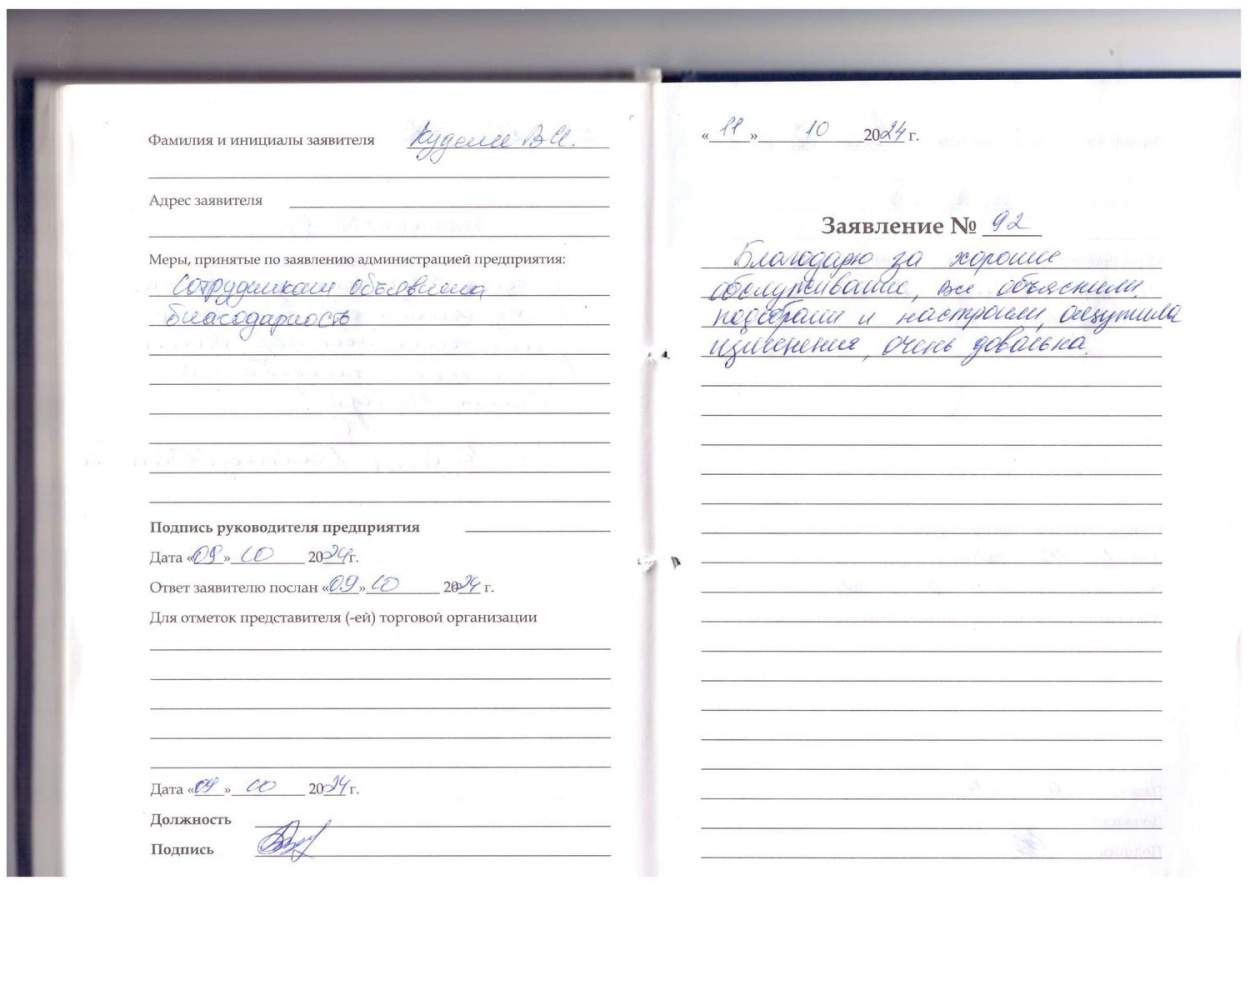 Фамилия и инициалы заявителя В.И.
Адрес заявителя
Меры, принятые по заявлению администрацией предприятия:
Сотрудникам объявлена
благодарность
Подпись руководителя предприятия
Дата «09» 10 2024 г.
Ответ заявителю послан «09» 10 2024 г.
Для отметок представителя (-ей) торговой организации
Дата «09» 10 2024 г.
Должность
Подпись
«11» 10 2024 г.
Заявление № 92
Благодарю за хорошие
обслуживание, все объяснили,
подобрали и настроили, ощутила
изменения, очень довольна.